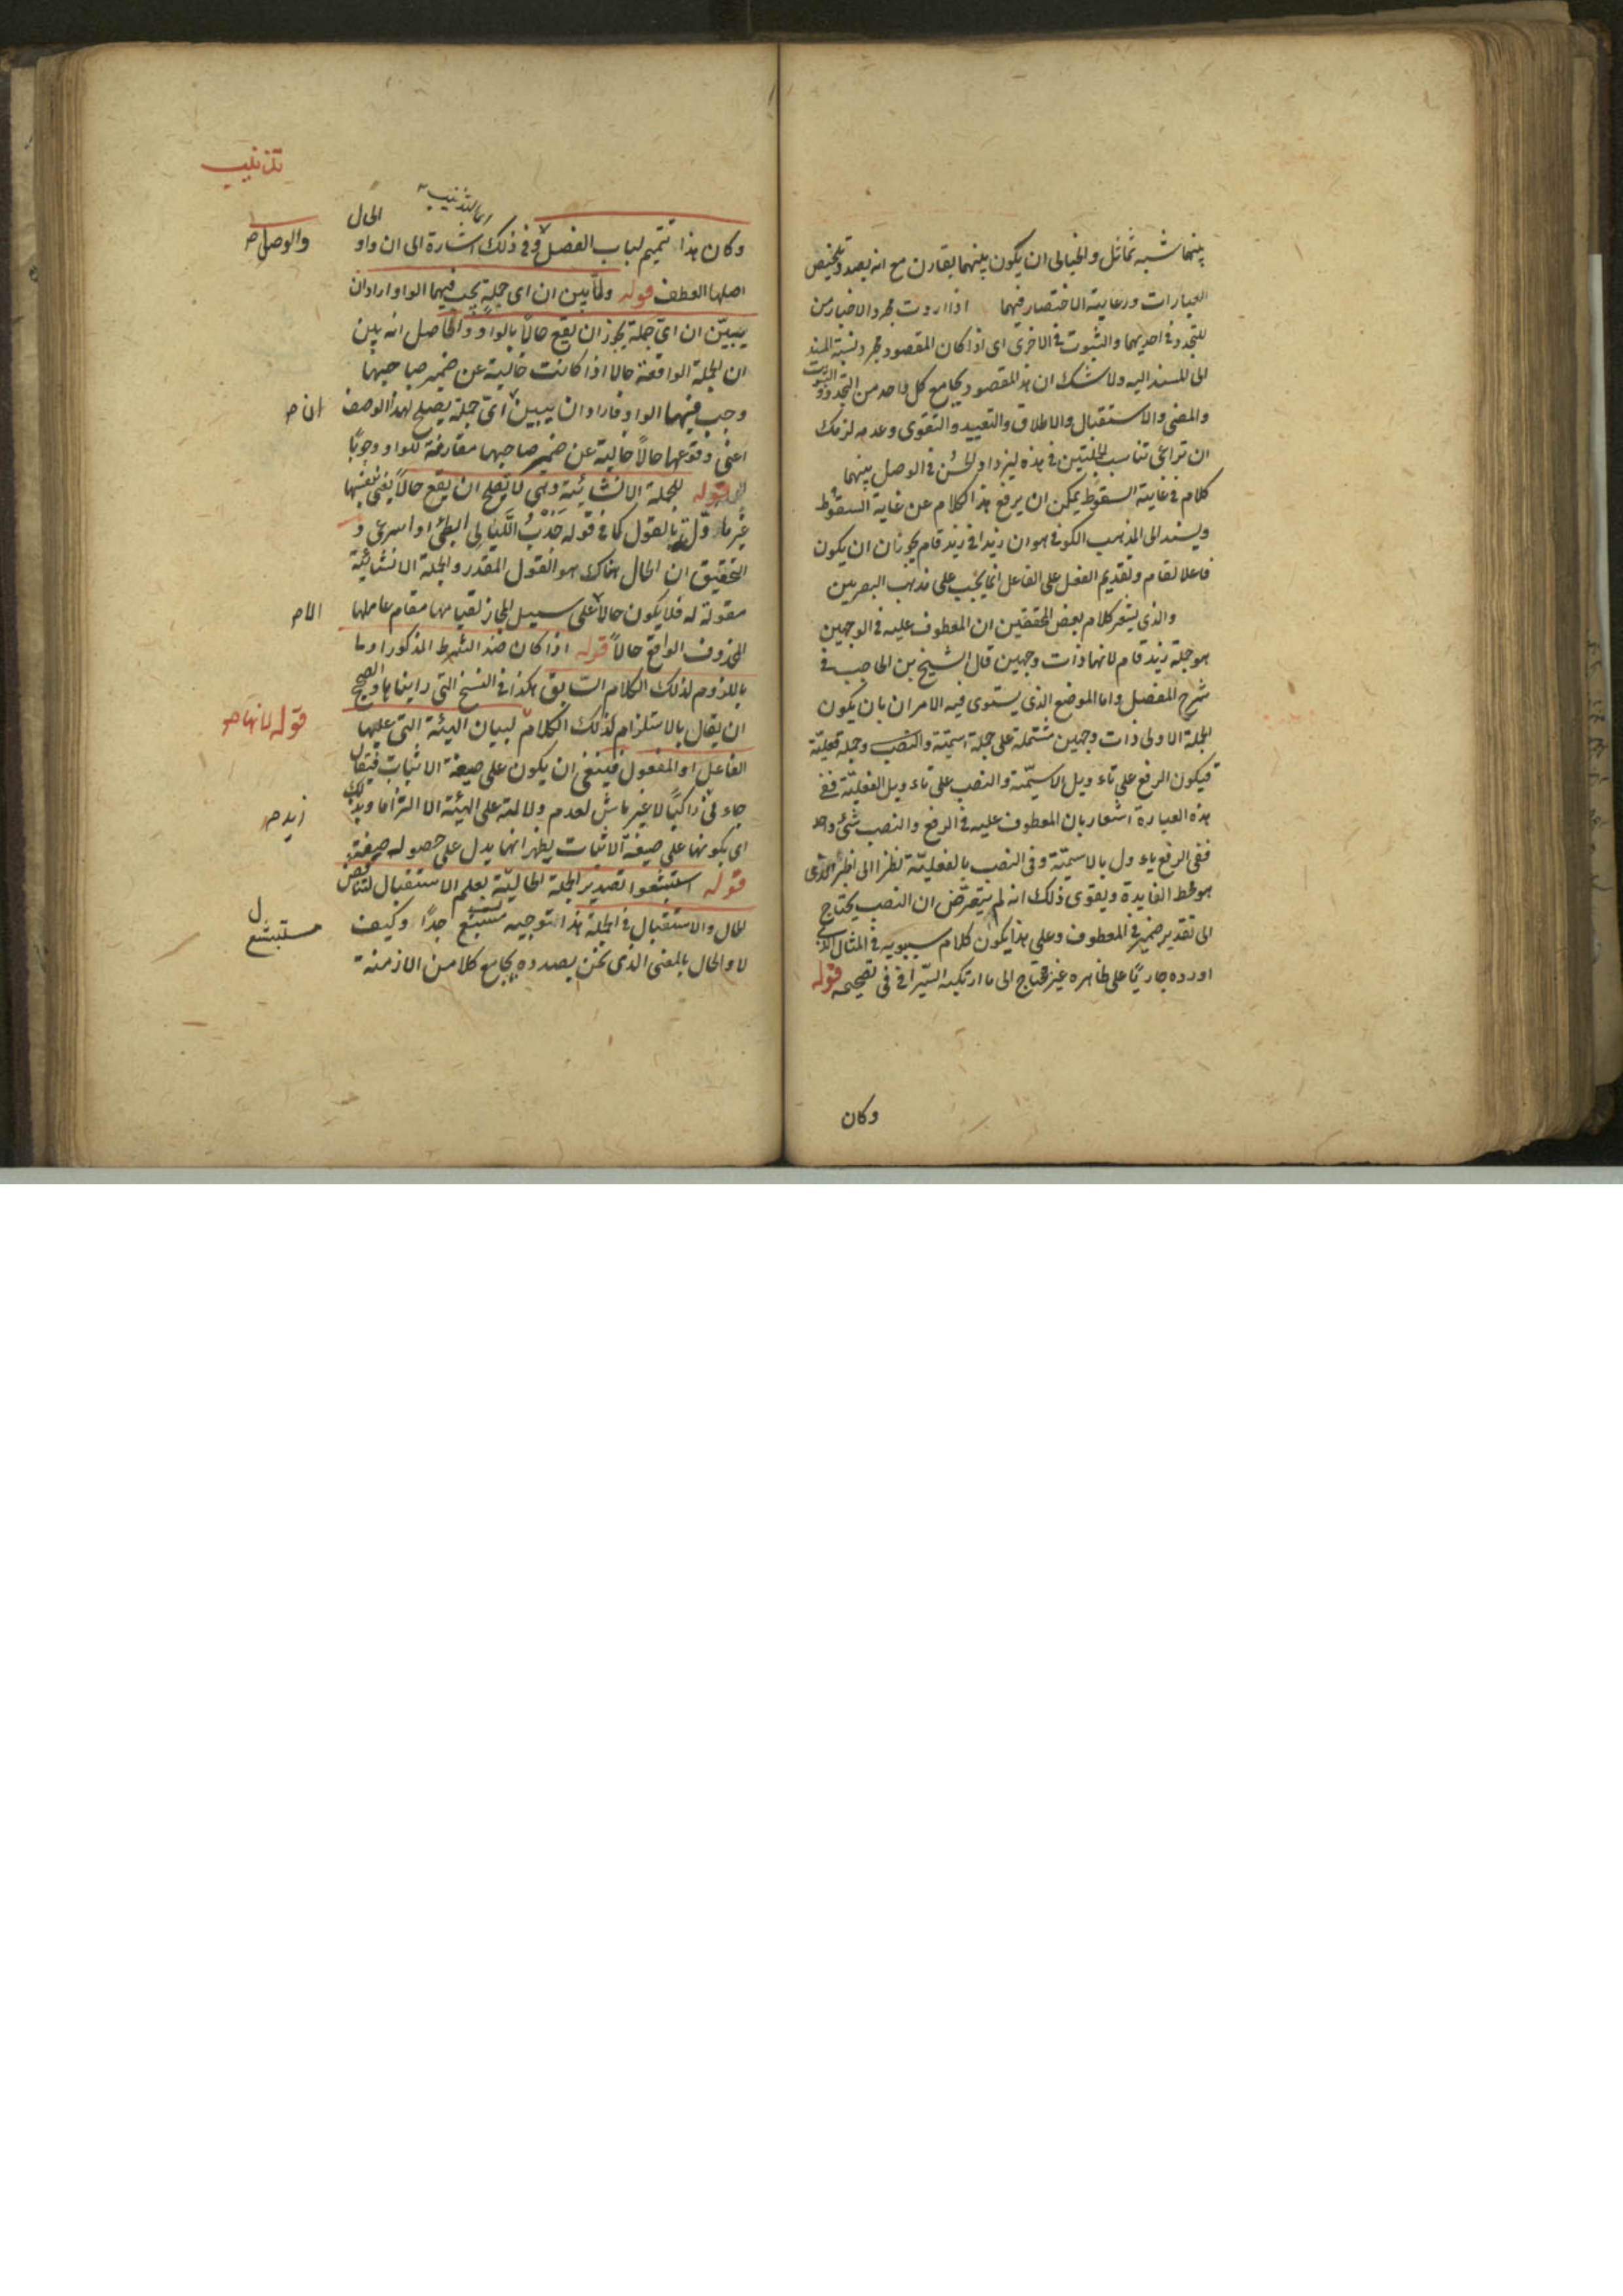 بينهما شبه تماثل والخيالى ان يكون بينهما تقارن مع انه بصدد تلخيص
العبارات ورعاية الاختصار فيهما اذا اردت مجرد الاخبار من
للتجدد فى احديهما والثبوت فى الاخرى اى اذا كان المقصود مجرد نسبة المسند
الى المسند اليه ولا شك ان هذا المقصود يجامع كل واحد من التجدد والثبوت
والمضى والاستقبال والاطلاق والتقييد والتقوى وعدمه لزمك
ان تراعى تناسب الجملتين فى هذه ليزداد الحسن فى الوصل بينهما
كلام فى غاية السقوط يمكن ان يرفع هذا الكلام عن غاية السقوط
ويسند الى المذهب الكوفى هو ان زيدا فى زيد قام يجوز ان يكون
فاعلا لقام وتقديم الفعل على الفاعل انما يجب على مذهب البصريين
والذى يشعر كلام بعض المحققين ان المعطوف عليه فى الوجهين
هو جملة زيد قام لانها ذات وجهين قال الشيخ بن الحاجب فى
شرح المفصل واما الموضع الذى يستوى فيه الامران بان يكون
الجملة الاولى ذات وجهين مشتملة على جملة اسمية والنصب وجملة فعلية
فيكون الرفع على تاءويل الاسمية والنصب على تاءويل الفعلية ففى
هذه العبارة اشعار بان المعطوف عليه فى الرفع والنصب شئ واحد
ففى الرفع ياءول بالاسمية وفى النصب بالفعلية نظرا الى الخبر الذى
هو محط الفايدة ويقوى ذلك انه لم يتعرض ان النصب يحتاج
الى تقدير ضمير فى المعطوف وعلى هذا يكون كلام سيبويه فى المثال الذى
اورده جاريا على ظاهره غير محتاج الى ما ارتكبه السيرافى فى تصحيحه قوله
وكان
تذنيب
اى بالتذنيب
الحال
وكان هذا تتميم لباب الفصل وفى ذلك اشارة الى ان واو
والوصل صح
اصلها العطف قوله ولما بين ان اى جملة يجب فيها الواو اراد ان
يبين ان اى جملة يجوز ان يقع حالا بالواو والحاصل انه بين
ان الجملة الواقعة حالا اذا كانت خالية عن ضمير صاحبها
وجب فيها الواو فاراد ان يبين اى جملة يصلح لهذا الوصف
ان صح
اعنى وقوعها حالا خالية عن ضمير صاحبها مقارنة للواو وجوبا
قوله الجملة الانشائية وهى لا تصلح ان يقع حالا يعنى بنفسها
غير ماءول بالقول كما فى قوله جذب الليالى ابطئى او اسرعى و
التحقيق ان الحال هناك هو القول المقدر والجملة الانشائية
مقولة له فلا يكون حالا على سبيل المجاز لقيامها مقام عاملها
الا صح
المحذوف الواقع حالا قوله اذا كان ضد الشرط المذكور اوما
باللزوم لذلك الكلام السابق هكذا فى النسخ التى رايناها والصحيح
ان يقال بالاستلزام لذلك الكلام لبيان الهيئة التى عليها
قوله لانها صح
الفاعل او المفعول فينبغى ان يكون على صيغة الاثبات فيقال
جاءنى راكبا لا غير ماش لعدم دلالته على الهيئة الا التزاما وبذلك
زيد صح
اى بكونها على صيغة الاثبات يظهر انها يدل على حصوله صيغة
قوله استبشعوا تصدير الجملة الحالية بعلم الاستقبال لتناقض
الحال والاستقبال فى الجملة هذا التوجيه مستبشع جدا وكيف
مستبشع
لا والحال بالمعنى الذى نحن بصدده يجامع كلا من الازمنة